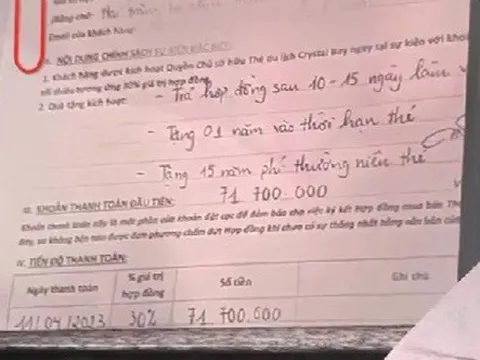 (Bằng chữ:
Email của khách hàng:
II. NỘI DUNG CHÍNH SÁCH SỰ KIỆN ĐẶC BIỆT:
1. Khách hàng được kích hoạt Quyền Chủ sở hữu Thẻ du lịch Crystal Bay ngay tại sự kiện với khoản
tối thiểu tương ứng 30% giá trị hợp đồng.
2. Quà tặng kích hoạt: - Trả hợp đồng sau 10 - 15 ngày làm
- Tặng 01 năm vào thời hạn thẻ
- Tặng 15 năm phí thường niên thẻ
III. KHOẢN THANH TOÁN ĐẦU TIÊN: 71 700.000
Khoản thanh toán này là một phần của khoản đặt cọc để đảm bảo cho việc ký kết Hợp đồng mua bán Thẻ
Bay, so không bên nào được đơn phương chấm dứt Hợp đồng khi chưa có sự thống nhất bằng văn bản của
IV. TIẾN ĐỘ THANH TOÁN:
Ngày thanh toán % giá trị hợp đồng Số tiền Ghi chú
11/04/2023 30% 71 700.000